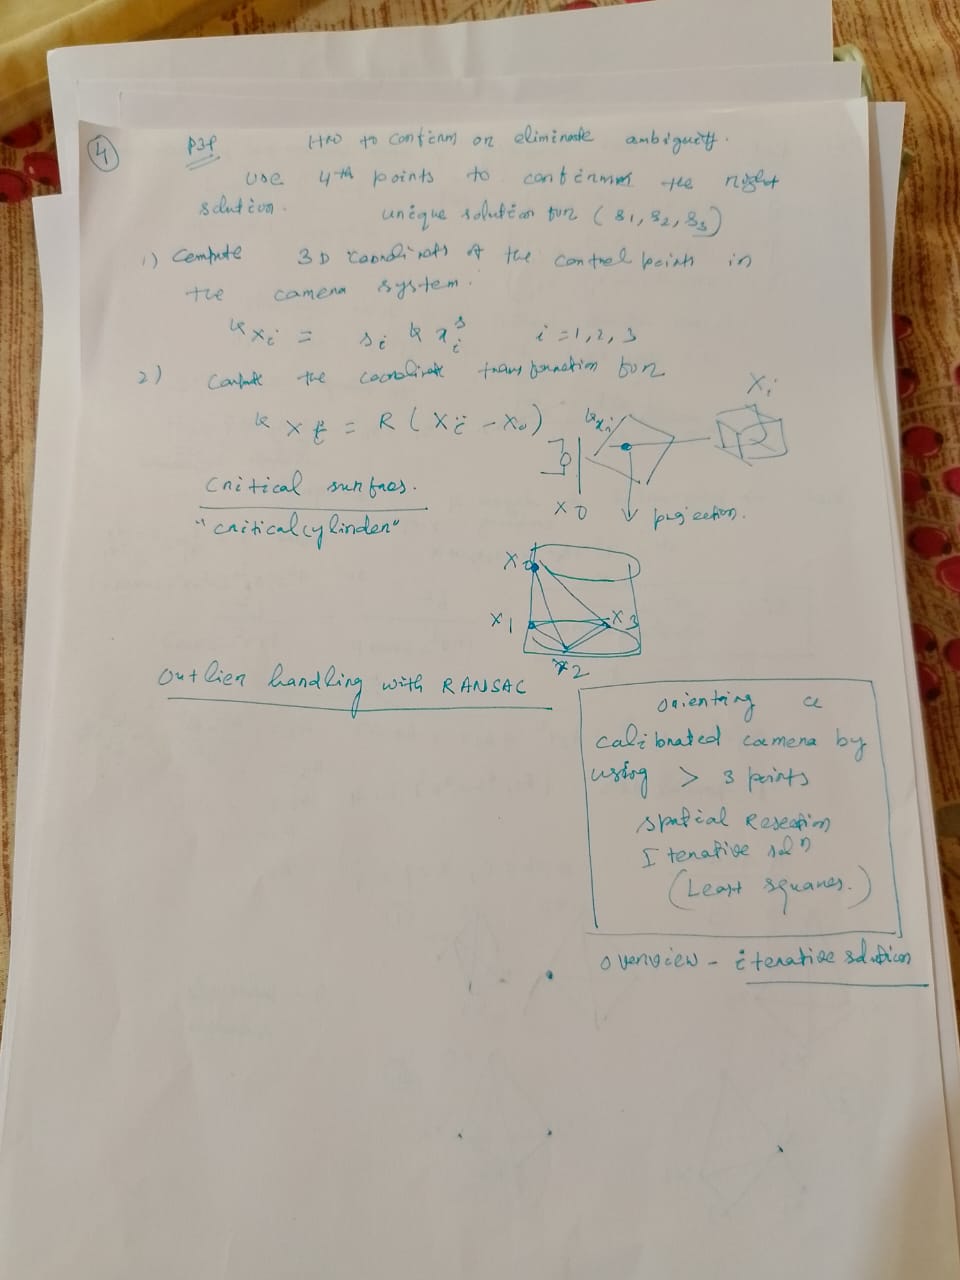 4
P3P How to confirm or eliminate ambiguity.
use 4th points to confirm the right
solution. unique solution for (s1, s2, s3)
1) Compute 3D coordinats of the control points in
the camera system.
k xi = si k xi s i = 1, 2, 3
2) the coordinate transformation for
k X = R (Xi - X0)
Xi
k xi
X0
projection.
Critical surfaces.
"critical cylinder"
X0
X1
X3
X2
Outlier handling with RANSAC
Orienting a
calibrated camera by
using > 3 points
Spatial Resection
Iterative soln
(Least squares.)
overview - iterative solution